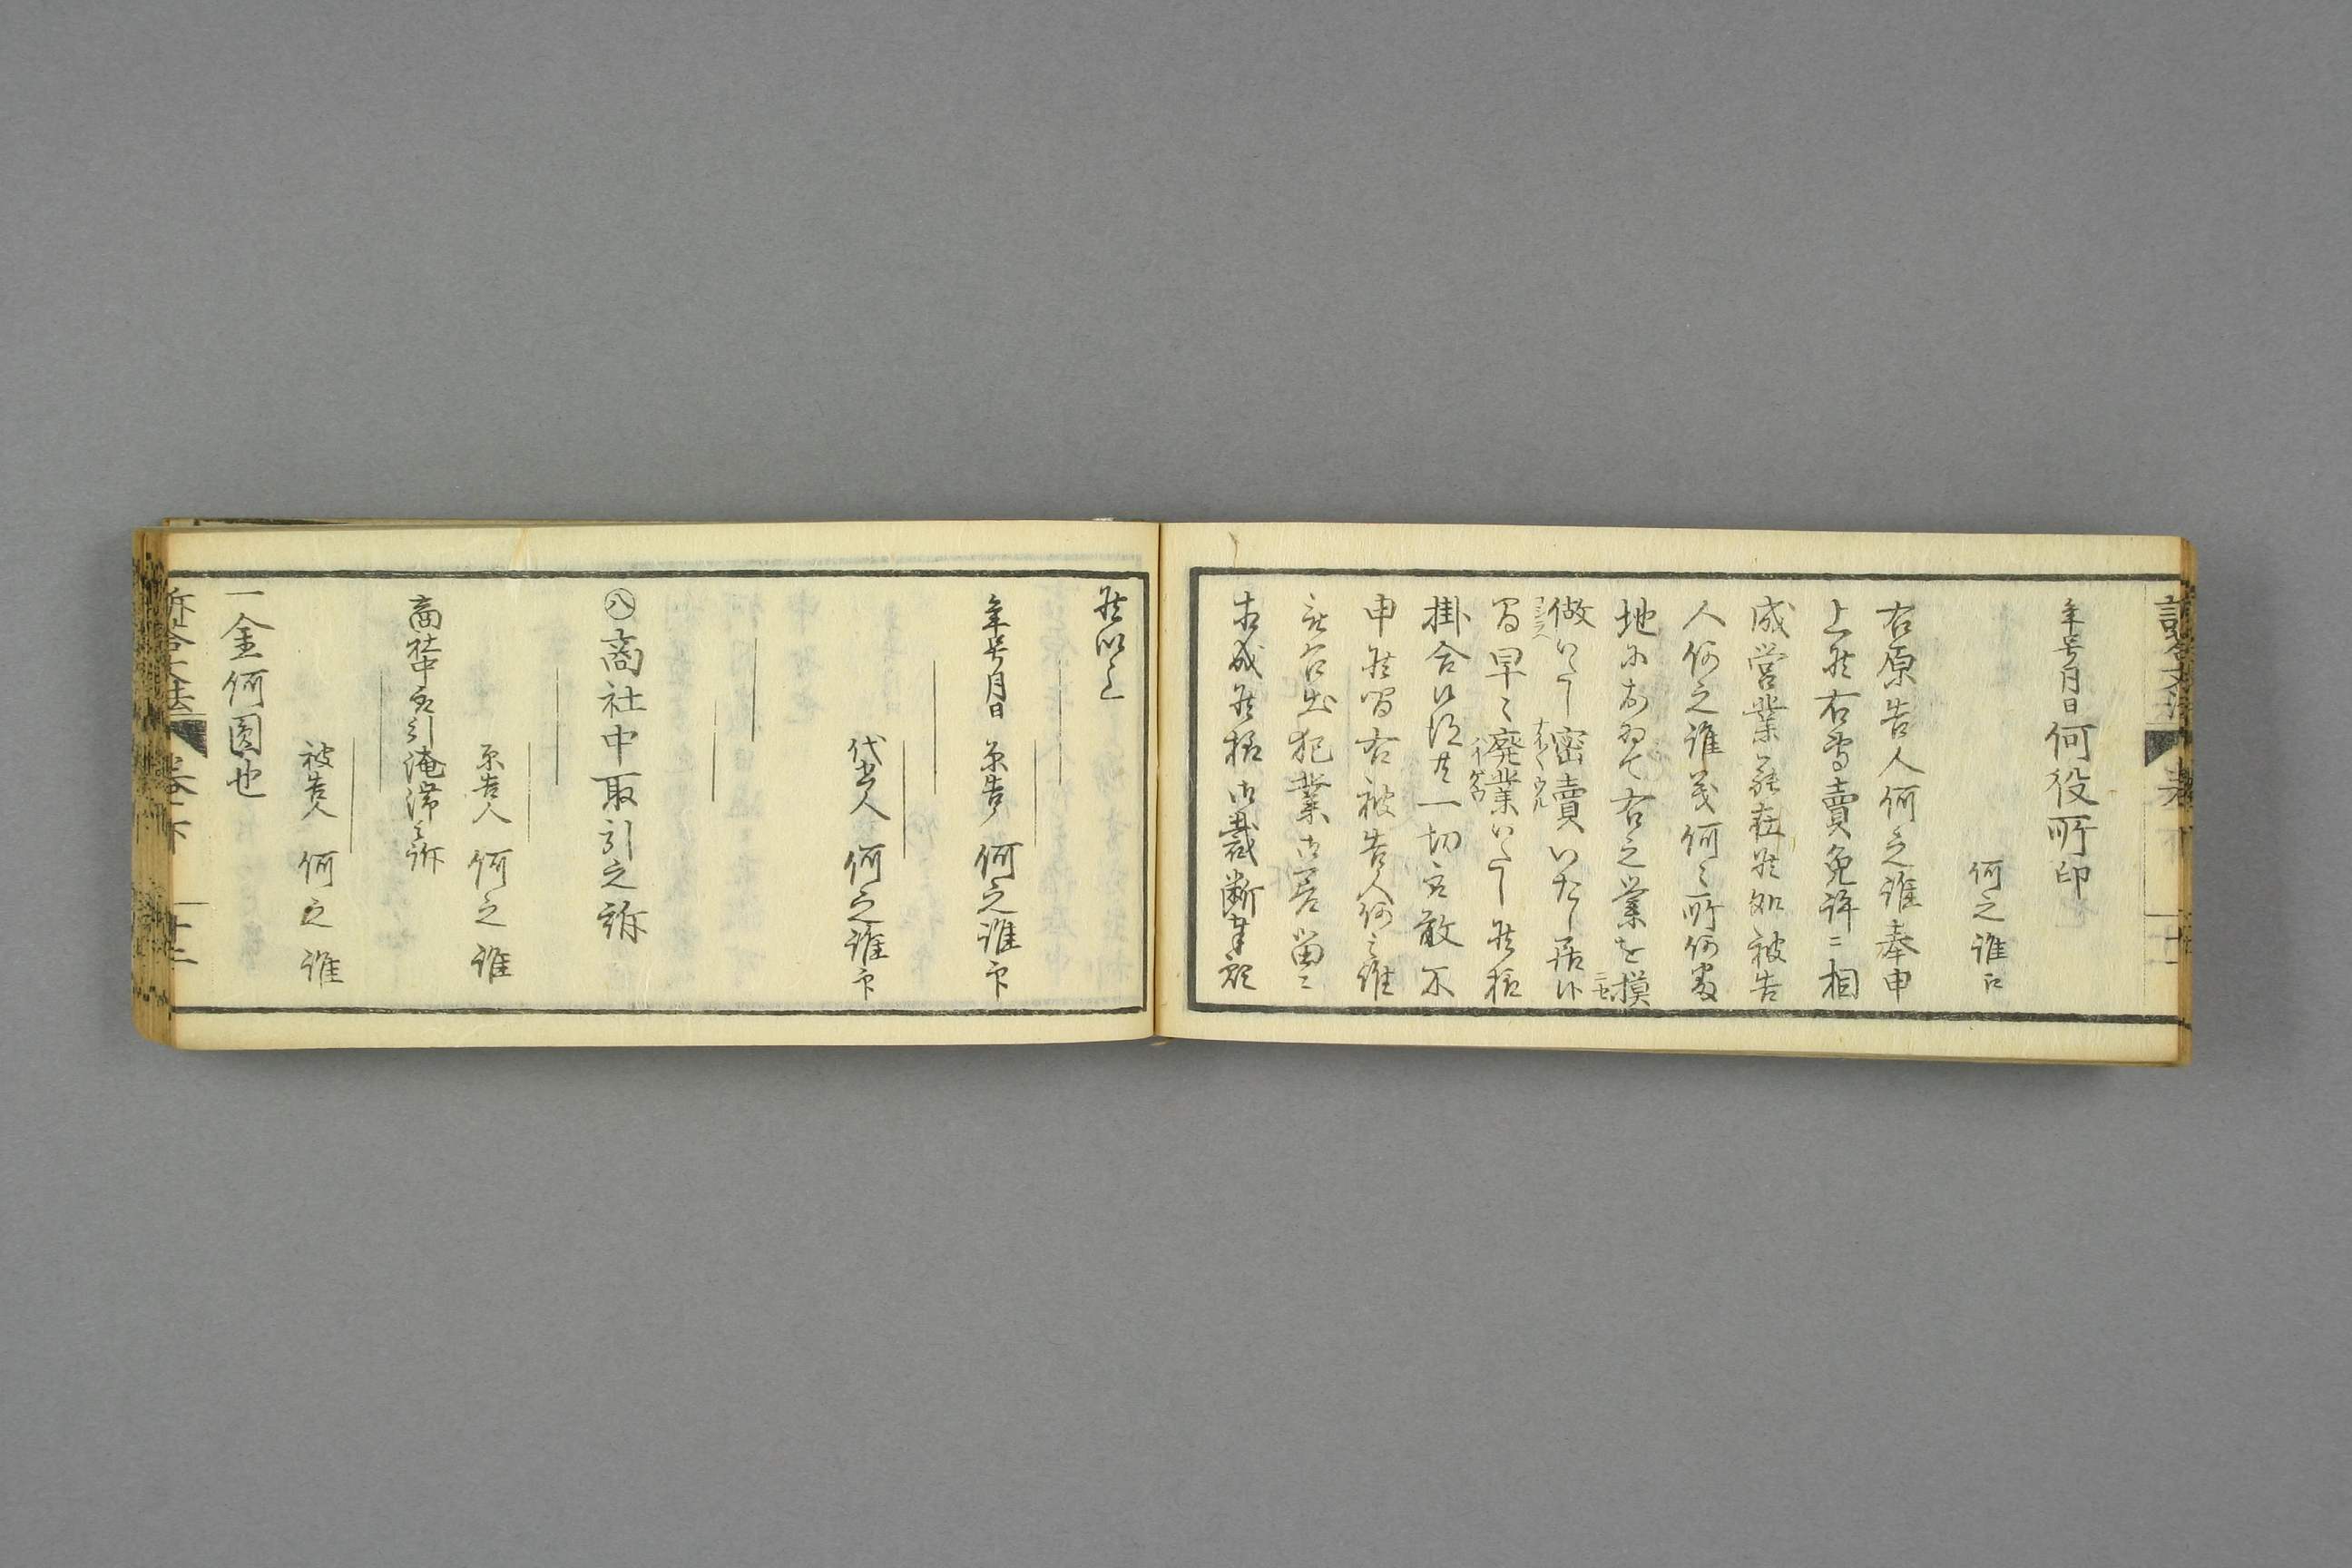 年号月日 何役所印
何之誰印
右原告人何之誰奉申
上候右専賣免許ニ相
成営業罷在候処被告
人何之誰義何々所何番
地ニおゐて右之業を摸
做いたし密賣いたし居候
間早々廃業いたし候様
掛合候得共一切取敢不
申候間右被告人何之誰
被召出犯業御差留ニ
相成候様御裁断奉願
候以上
年号月日 原告人 何之誰印
代書人 何之誰印
㊇商社中取引之訴
原告人 何之誰
商社中取引淹滞之訴
被告人 何之誰
一金何圓也
訴答文法 卷下 十二